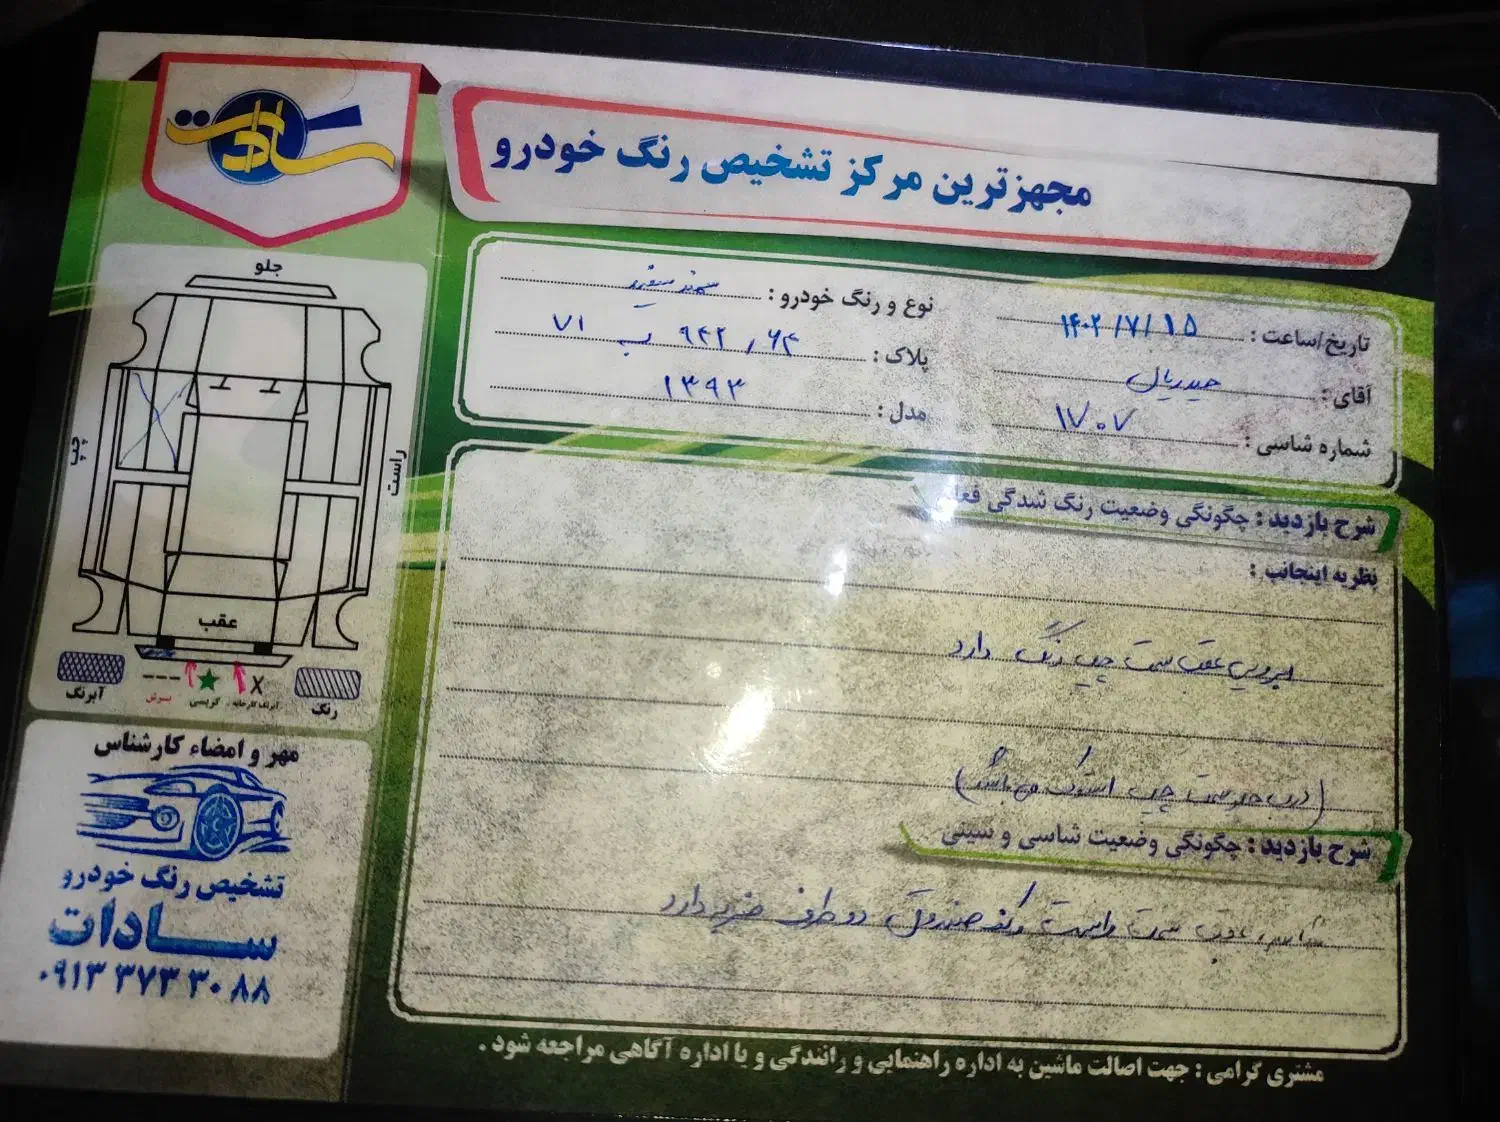 سادات
مجهزترین مرکز تشخیص رنگ خودرو
تاریخ/ساعت : ۱۴۰۲/۷/۱۵
نوع و رنگ خودرو : سمند سفید
آقای :
پلاک : ۶۴ / ۹۴۲ ب ۷۱
شماره شاسی : ۱۷۰۷
مدل : ۱۳۹۳
شرح بازدید : چگونگی وضعیت رنگ شدگی فعلی
نظریه اینجانب :
عقب سمت چپ رنگ دارد
(درب جلو سمت چپ استوک می باشد)
شرح بازدید : چگونگی وضعیت شاسی و سینی
شاسی عقب سمت راست و کف صندوق دو طرف ضربه دارد
مشتری گرامی : جهت اصالت ماشین به اداره راهنمایی و رانندگی و یا اداره آگاهی مراجعه شود .
جلو
چپ
راست
عقب
رنگ
X
آبرنگ کارخانه
گریسی
برش
آبرنگ
مهر و امضاء کارشناس
تشخیص رنگ خودرو
سادات
۰۹۱۳ ۳۷۳ ۳۰۸۸